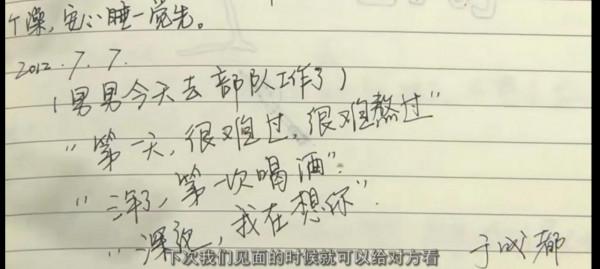 个澡，安心睡一觉先。
2012.7.7.
(男男今天去部队工作了)
"第一天，很难过，很难熬过"
"三年了，第一次喝酒".
"深夜，我在想你".
下次我们见面的时候就可以给对方看
于成都